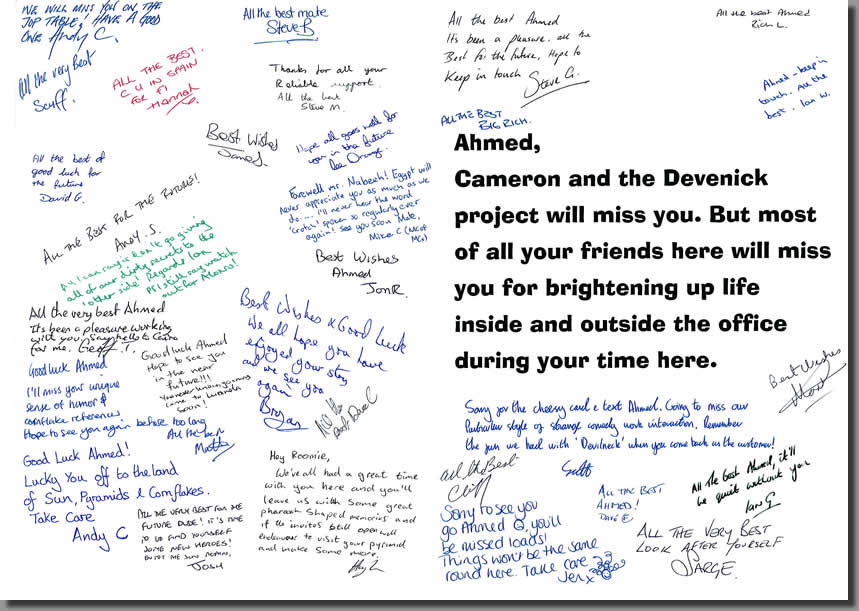 WE WILL MISS YOU ON THE
TOP TABLE! HAVE A GOOD
ONE ANDY C.
All the very Best
Scuff.
ALL THE BEST.
C U IN SPAIN
FOR F1
Hannah
All the best mate
Steve B
Thanks for all your
Reliable support.
All the best
Steve M.
Best Wishes
James
Hope all goes well for
you in the future
All the best of
good luck for
the future
David G.
ALL THE BEST FOR THE FUTURE!
ANDY. S.
Farewell Mr. Nabeeh! Egypt will
never appreciate you as much as we
do..... I'll never hear the word
'crotch' spoken so regularly ever
again! See you soon Mate.
Mike C
All I can say is don't go giving
all of our dirty secrets to the
'other side'! Regards Ian
PS I still say watch
out for Alonso!
Best Wishes
Ahmed
Jon R.
All the very best Ahmed
It's been a pleasure working
with you. Say hello to Cairo
for me. Geoff. T.
Good luck Ahmed
I'll miss your unique
sense of humor &
cornflake references
Hope to see you again before too long
All the best
Good luck Ahmed
Hope to see you
in the near
future!!!
You never know, you may
come to
soon!
Best Wishes & Good Luck
We all hope you have
enjoyed your stay
and we see you
again
Bryan
All the
Best
Good Luck Ahmed!
Lucky You off to the land
of Sun, Pyramids & Cornflakes.
Take Care
Andy C
ALL THE VERY BEST FOR THE
FUTURE DUDE! IT'S TIME
TO GO FIND YOURSELF
SOME NEW HEROES!
ENJOY THE SUN
JOSH
Hey Roomie,
We've all had a great time
with you here and you'll
leave us with some great
pharaoh shaped memories and
if the invites still open will
endeavour to visit your pyramid
and make some more.
All the best Ahmed
Its been a pleasure. all the
Best for the future, Hope to
Keep in touch
Steve G.
All the best Ahmed
Rich L.
Ahmed - keep in
touch. All the
best. Ian W.
ALL THE BEST
BIG RICH.
Ahmed,
Cameron and the Devenick
project will miss you. But most
of all your friends here will miss
you for brightening up life
inside and outside the office
during your time here.
Best Wishes
Sorry for the cheesy card & text Ahmed. Going to miss our
style of strange comedy work interaction. Remember
the fun we had with 'Devilneck' when you come back as the customer!
Scott
All the Best
Cliff
Sorry to see you
go Ahmed Q, you'll
be missed loads!
Things won't be the same
round here. Take care
Jen x
ALL THE BEST
AHMED!
DAVE E
All the best Ahmed, it'll
be quiet without you
Ian G
ALL THE VERY BEST
LOOK AFTER YOURSELF
SARGE.